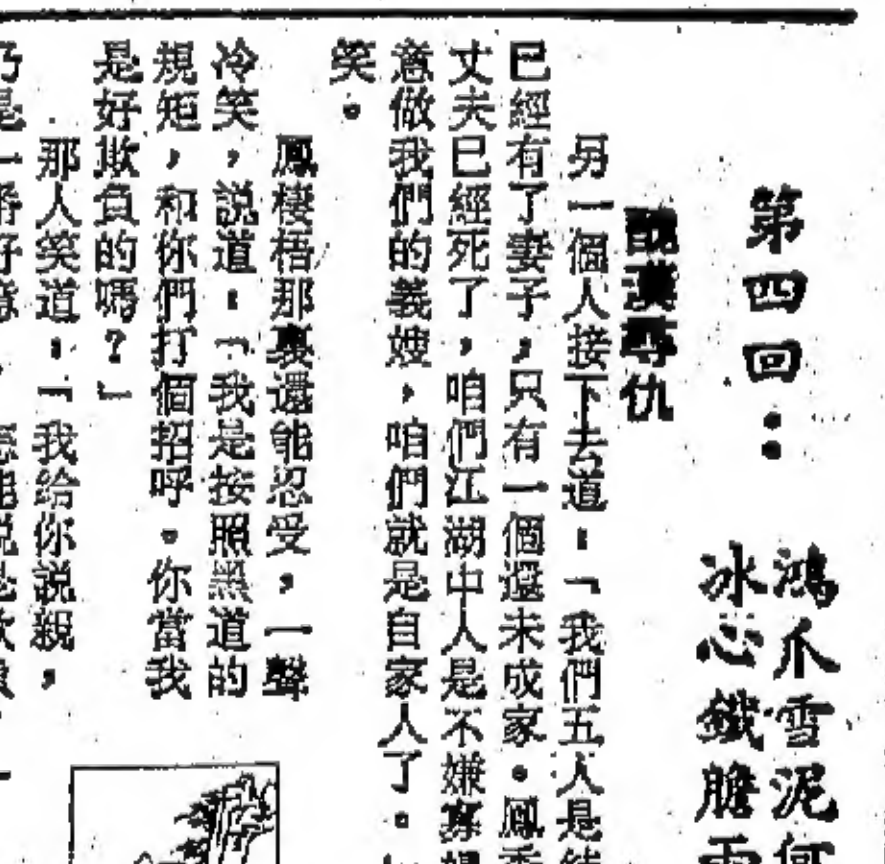 第四回：
鴻爪雪泥何
冰心鐵膽兩
醜漢尋仇
另一個人接下去道：「我們五人是結
已經有了妻子，只有一個還未成家。鳳香
丈夫已經死了，咱們江湖中人是不嫌寡婦
意做我們的義嫂，咱們就是自家人了。」
笑。
鳳棲梧那裏還能忍受，一聲
冷笑，説道：「我是按照黑道的
規矩，和你們打個招呼。你當我
是好欺負的嗎？」
那人笑道：「我給你説親，
乃是一番好意，怎能説是欺負